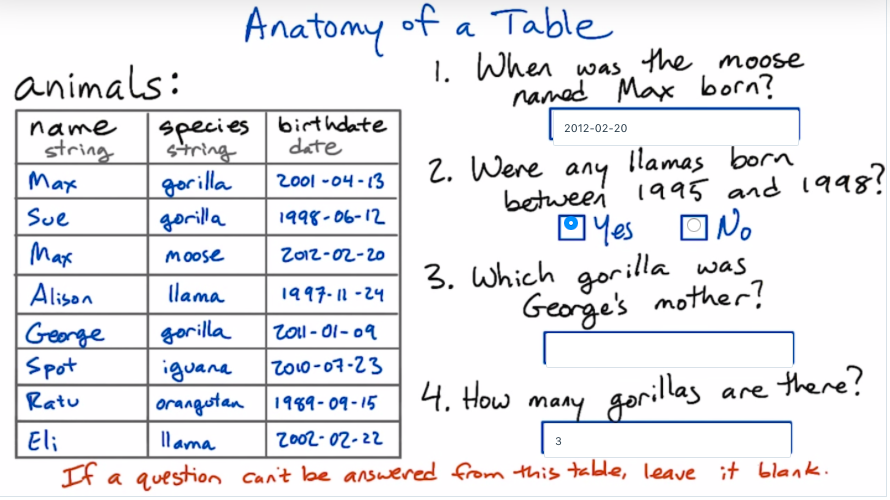 Anatomy of a Table
animals:
name species birthdate
string string date
Max gorilla 2001-04-13
Sue gorilla 1998-06-12
Max moose 2012-02-20
Alison llama 1997-11-24
George gorilla 2011-01-09
Spot iguana 2010-07-23
Ratu orangutan 1989-09-15
Eli llama 2002-02-22
1. When was the moose
named Max born?
2012-02-20
2. Were any llamas born
between 1995 and 1998?
Yes No
3. Which gorilla was
George's mother?
4. How many gorillas are there?
3
If a question can't be answered from this table, leave it blank.